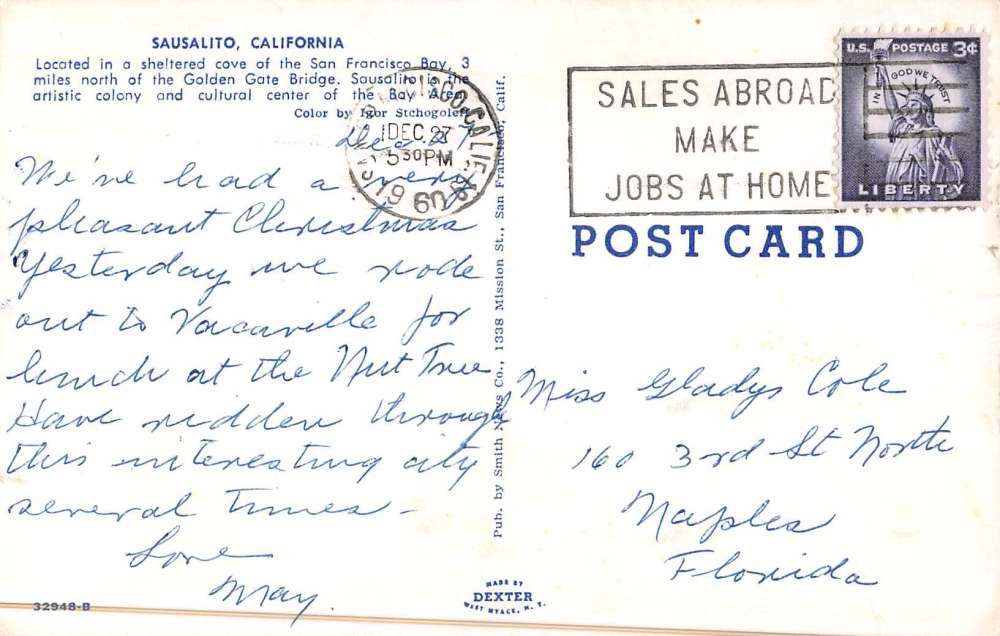 SAUSALITO, CALIFORNIA
Located in a sheltered cove of the San Francisco Bay, 3
miles north of the Golden Gate Bridge. Sausalito is the
artistic colony and cultural center of the Bay Area.
Color by Igor Stchogoleff
Dec. 27
We've had a very
pleasant Christmas
Yesterday we rode
out to Vacaville for
lunch at the Nut Tree
Have ridden through
this interesting city
several times -
Love
May.
32948-B
Pub. by Smith News Co., 1338 Mission St., San Francisco, Calif.
SAN FRANCISCO, CALIF.
1 DEC. 27
5 30 PM
1960
SALES ABROAD
MAKE
JOBS AT HOME
U.S. POSTAGE 3¢
IN GOD WE TRUST
LIBERTY
POST CARD
Miss Gladys Cole
160 3rd St North
Naples
Florida
MADE BY
DEXTER
WEST NYACK, N. Y.